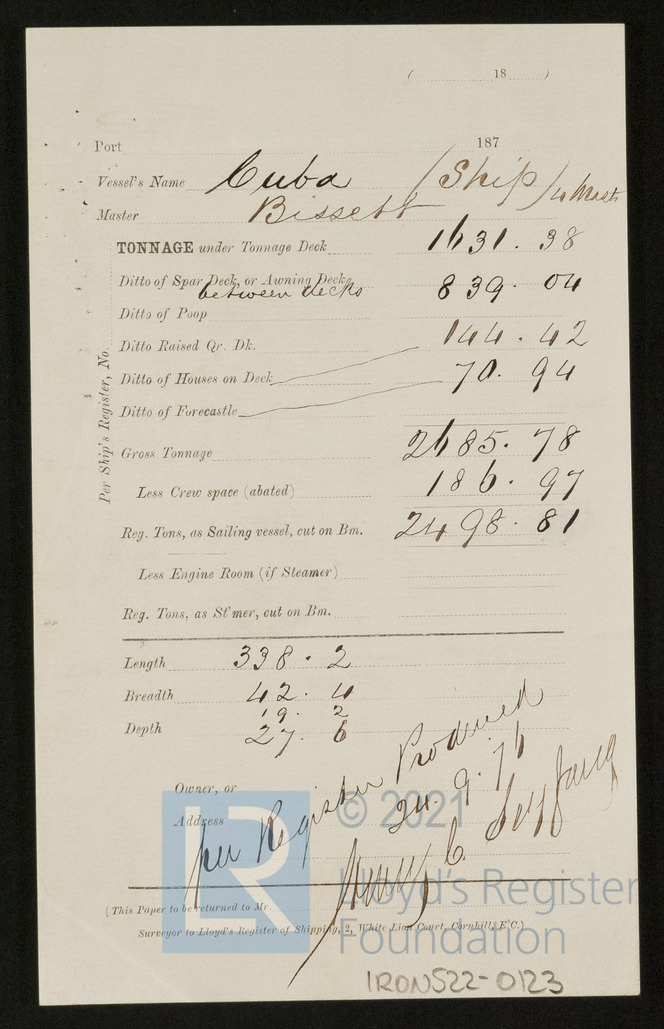 ( 18 )
Port 187
Vessel's Name Cuba (Ship) 4 Masts
Master Bissett
TONNAGE under Tonnage Deck 1631. 38
Ditto of Spar Deck, or Awning Decks 839. 04
between decks
Ditto of Poop
Ditto Raised Qr. Dk. 144. 42
Ditto of Houses on Deck 70. 94
Ditto of Forecastle
Per Ship's Register, No.
Gross Tonnage 2685. 78
Less Crew space (abated) 186. 97
Reg. Tons, as Sailing vessel, cut on Bm. 2498. 81
Less Engine Room (if Steamer)
Reg. Tons, as St'mer, cut on Bm.
Length 338. 2
Breadth 42. 4
19. 2
Depth 27. 6
Owner, or
Address
per Register Produced
24. 9. 76
Henry C.
(This Paper to be returned to Mr.
Surveyor to Lloyd's Register of Shipping, 2, White Lion Court, Cornhill, E.C.)
LR
© 2021
Lloyd's Register
Foundation
IRON522-0123